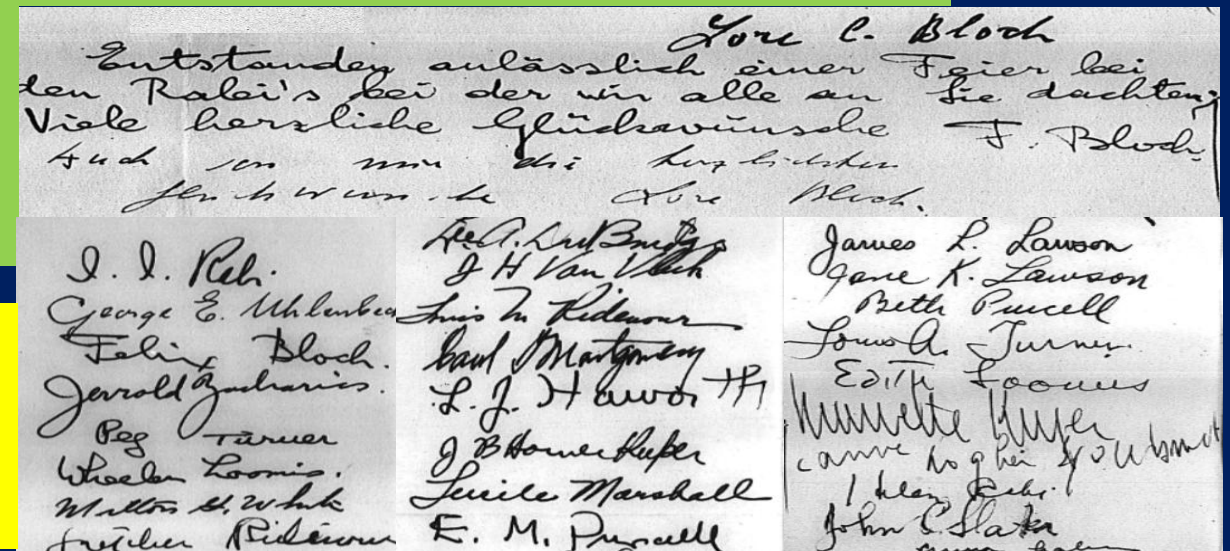 Lore C. Bloch
Entstanden anlässlich einer Feier bei
den Rabi's bei der wir alle an Sie dachten;
Viele herzliche Glückwünsche F. Bloch.
Auch von mir die herzlichsten
Glückwünsche Lore Bloch.
I. I. Rabi
George E. Uhlenbeck
Felix Bloch.
Jerrold Zacharias.
Peg Turner
Wheeler Loomis.
Milton G. White
Ridenour
Lee A. DuBridge
J H Van Vleck
Louis N Ridenour
Carol G Montgomery
L. J. Haworth
J B Horner Kuper
Lucile Marshall
E. M. Purcell
James L. Lawson
Jane K. Lawson
Beth Purcell
Louis A. Turner.
Edith Loomis
Kuper
Helen Rabi
John C Slater